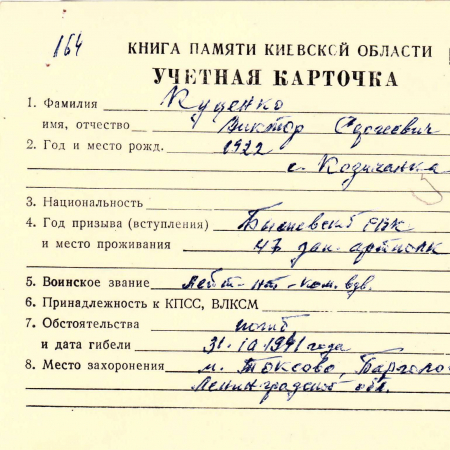 164
КНИГА ПАМЯТИ КИЕВСКОЙ ОБЛАСТИ
УЧЕТНАЯ КАРТОЧКА
1. Фамилия Куценко
имя, отчество Виктор Сергеевич
2. Год и место рожд. 1922
с. Козичанка
3. Национальность
4. Год призыва (вступления) Бышевский РВК
и место проживания 47 зап. артполк
5. Воинское звание лейт-нт - ком. взв.
6. Принадлежность к КПСС, ВЛКСМ
7. Обстоятельства погиб
и дата гибели 31.10 1941 года
8. Место захоронения м. Токсово, Парголо
Ленинградской обл.